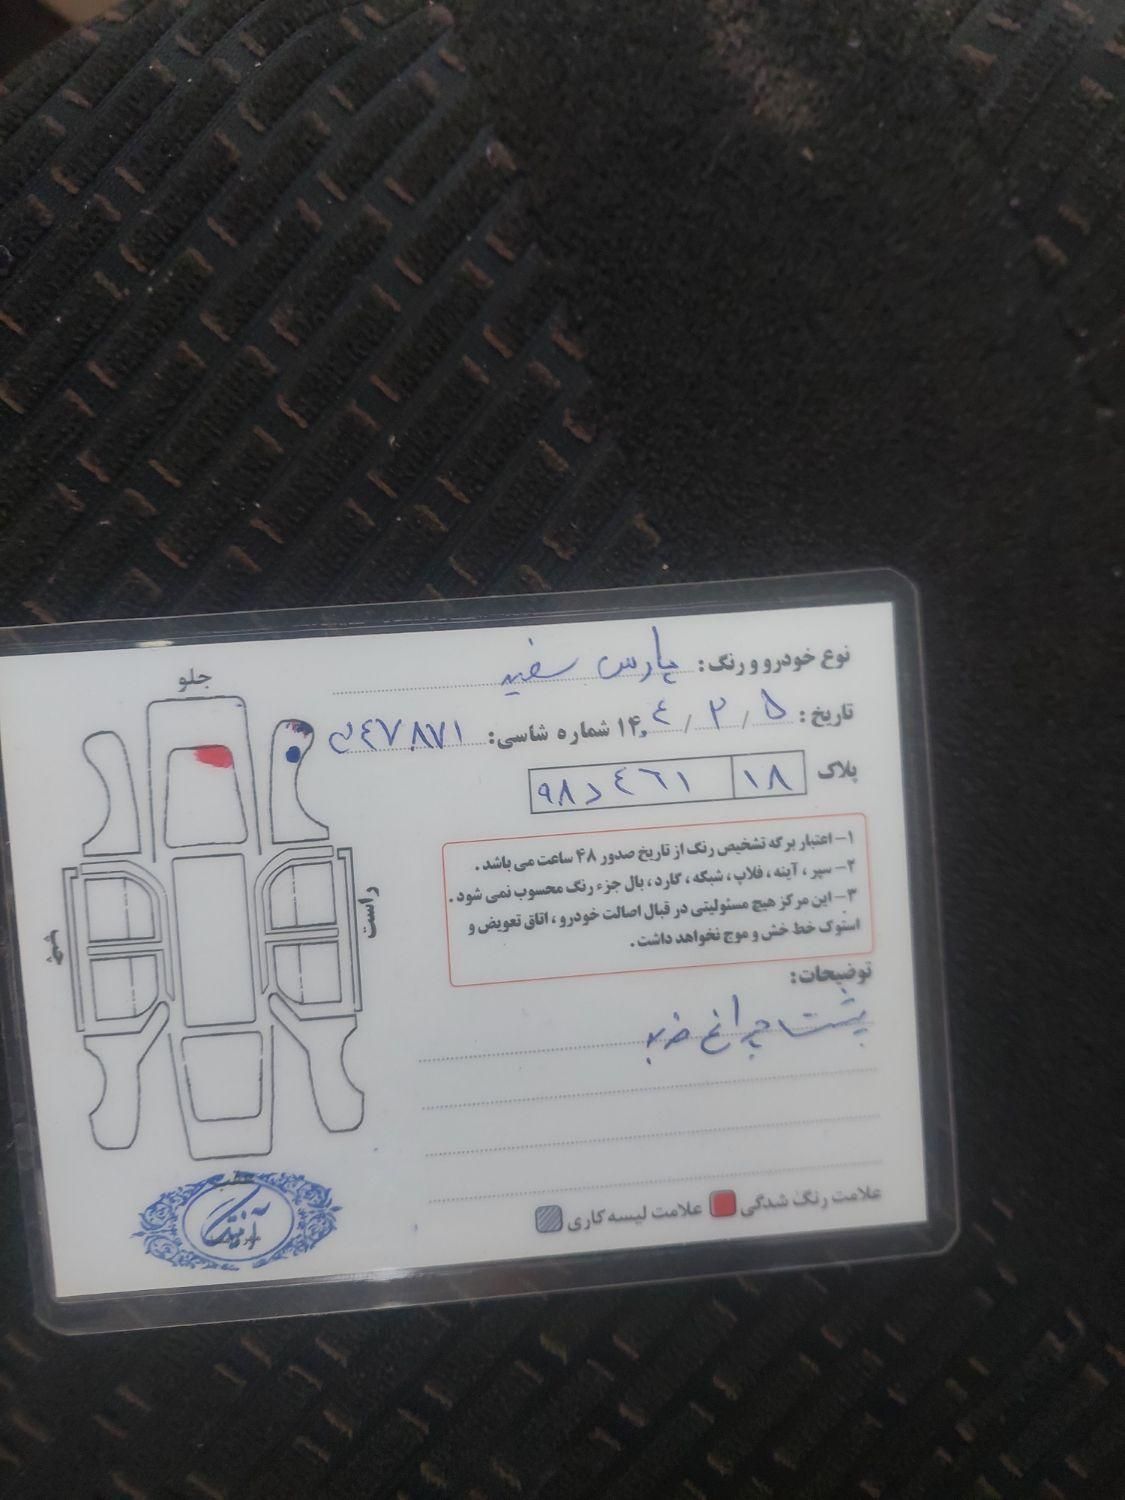 نوع خودرو و رنگ: پارس سفید
تاریخ: ۵ / ۳ / ۱۴۰۴ شماره شاسی:
پلاک ۱۸ ۴۶۱ د ۹۸
۱- اعتبار برگه تشخیص رنگ از تاریخ صدور ۴۸ ساعت می باشد .
۲- سپر ، آینه ، فلاپ ، شبکه ، گارد ، بال جزء رنگ محسوب نمی شود .
۳- این مرکز هیچ مسئولیتی در قبال اصالت خودرو ، اتاق تعویض و
استوک خط خش و موج نخواهد داشت .
توضیحات:
پشت چراغ ضربه
علامت رنگ شدگی علامت لیسه کاری
جلو
راست